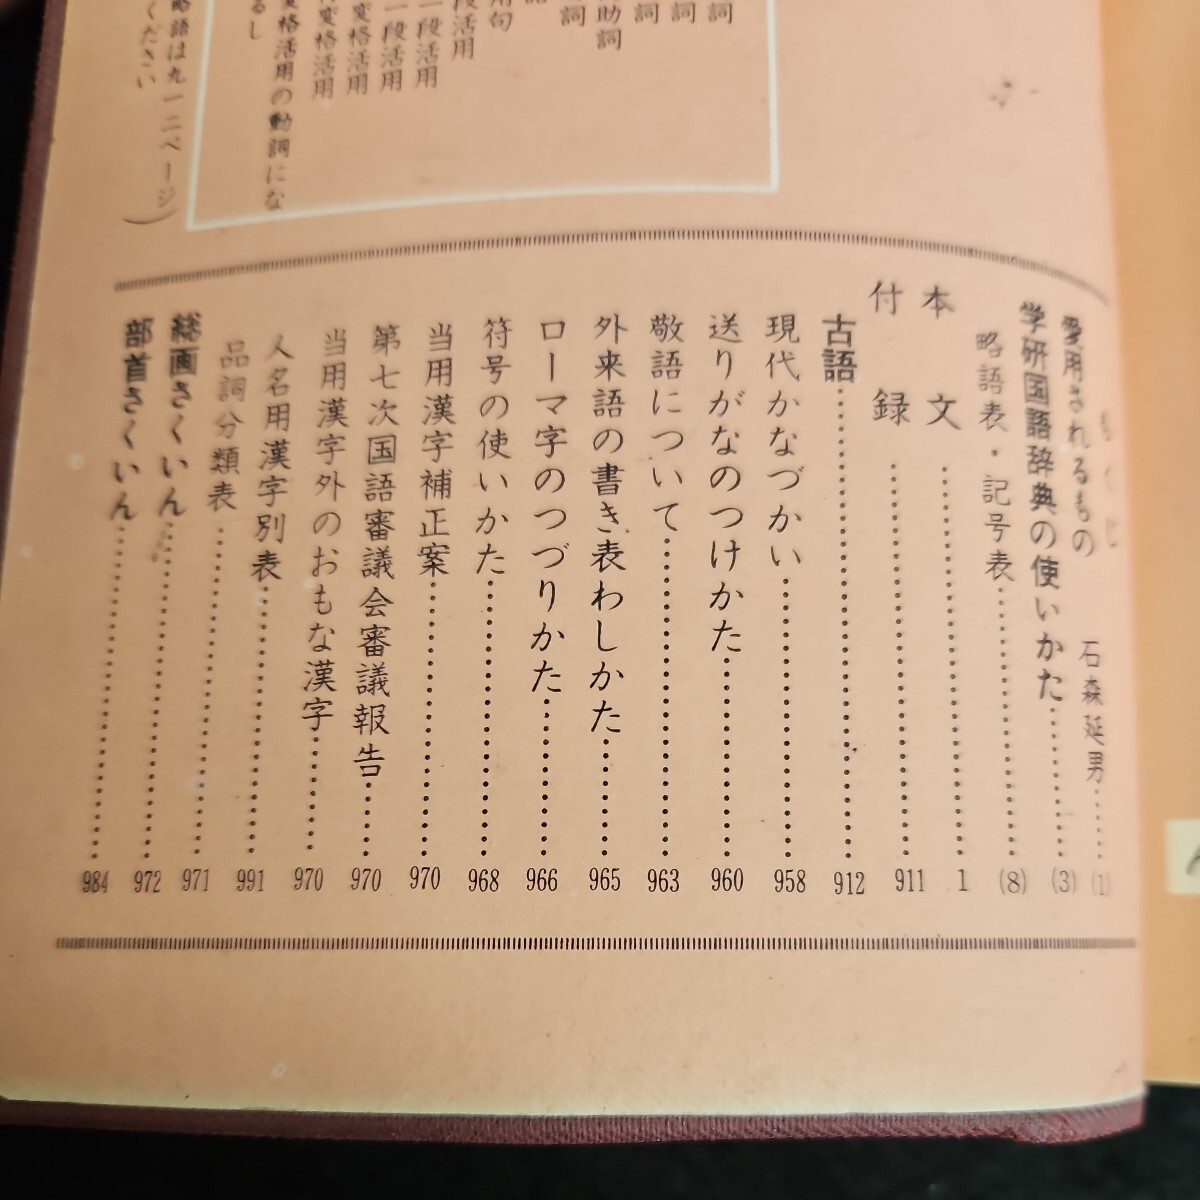 詞
詞
詞
助詞
詞
用句
段活用
一段活用
一段活用
変格活用
変格活用
変格活用の動詞にな
るし
略語は九一二ページ
ください)
もくじ
愛用されるもの 石森延男……(1)
学研国語辞典の使いかた……(3)
略語表・記号表……(8)
本文……1
付録……911
古語……912
現代かなづかい……958
送りがなのつけかた……960
敬語について……963
外来語の書き表わしかた……965
ローマ字のつづりかた……966
符号の使いかた……968
当用漢字補正案……970
第七次国語審議会審議報告……970
当用漢字外のおもな漢字……970
人名用漢字別表……991
品詞分類表……971
総画さくいん……972
部首さくいん……984